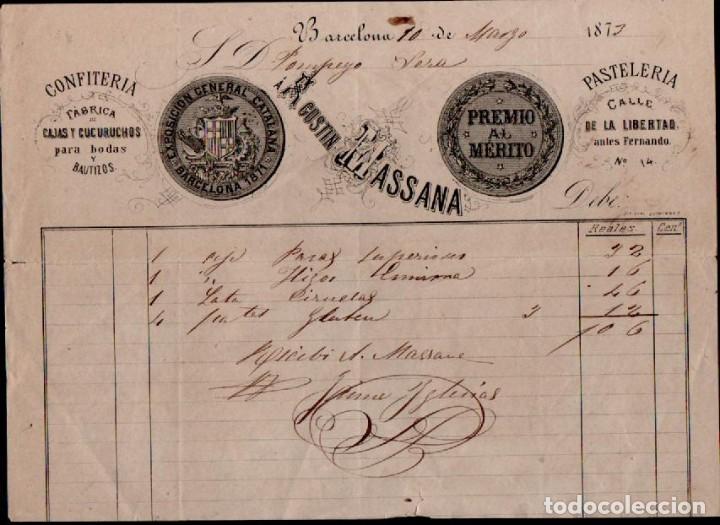 Barcelona 10 de Marzo 1873
S. D. Pompeyo Sera
CONFITERIA
FÁBRICA
DE
CAJAS Y CUCURUCHOS
para bodas
Y
BAUTIZOS.
EXPOSICIÓN GENERAL CATALANA
BARCELONA 1871
Á AGUSTIN MASSANA
PREMIO
AL
MÉRITO
PASTELERIA
CALLE
DE LA LIBERTAD
antes Fernando.
Nº 14.
Debe
Reales Cenˢ
1 caja Pasas superiores 32
1 " Higos 16
1 Lata Ciruelas 46
4 Gluten 3 12
106
Recibi A. Massana
Jaime Iglesias
todocoleccion.net